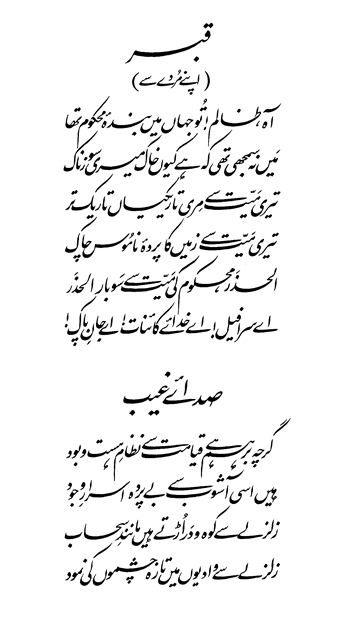 قبر
(اپنے مُردے سے)
آہ ظالم! تُو جہاں میں بندۂ محکوم تھا
مَیں نہ سمجھی تھی کہ ہے کیوں خاک میری سوزناک
تیری مَیّت سے مِری تاریکیاں تاریک تر
تیری مَیّت سے زمیں کا پردۂ نامُوس چاک
الحذَر، محکوم کی مَیّت سے سَو بار الحذَر
اے سرافیل! اے خدائے کائنات! اے جانِ پاک!
صدائے غیب
گرچہ برہم ہے قیامت سے نظامِ ہست و بود
ہیں اسی آشوب سے بے پردہ اسرارِ وجُود
زلزلے سے کوہ و در اُڑتے ہیں مانندِ سحاب
زلزلے سے وادیوں میں تازہ چشموں کی نمود